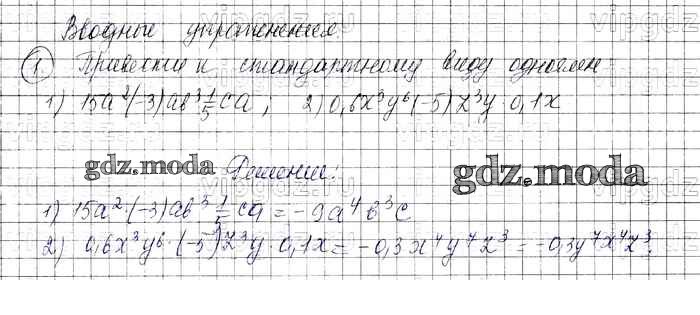 Вводные упражнения
① Привести к стандартному виду одночлен
1) 15a²(-3)ab³ 1/5 ca ; 2) 0,6x³y⁶(-5)z³y · 0,1x
gdz.moda Решение: gdz.moda
1) 15a²·(-3)ab³ 1/5 ca = -9a⁴b³c
2) 0,6x³y⁶·(-5)z³y · 0,1x = -0,3x⁴y⁷z³ = -0,3y⁷x⁴z³.